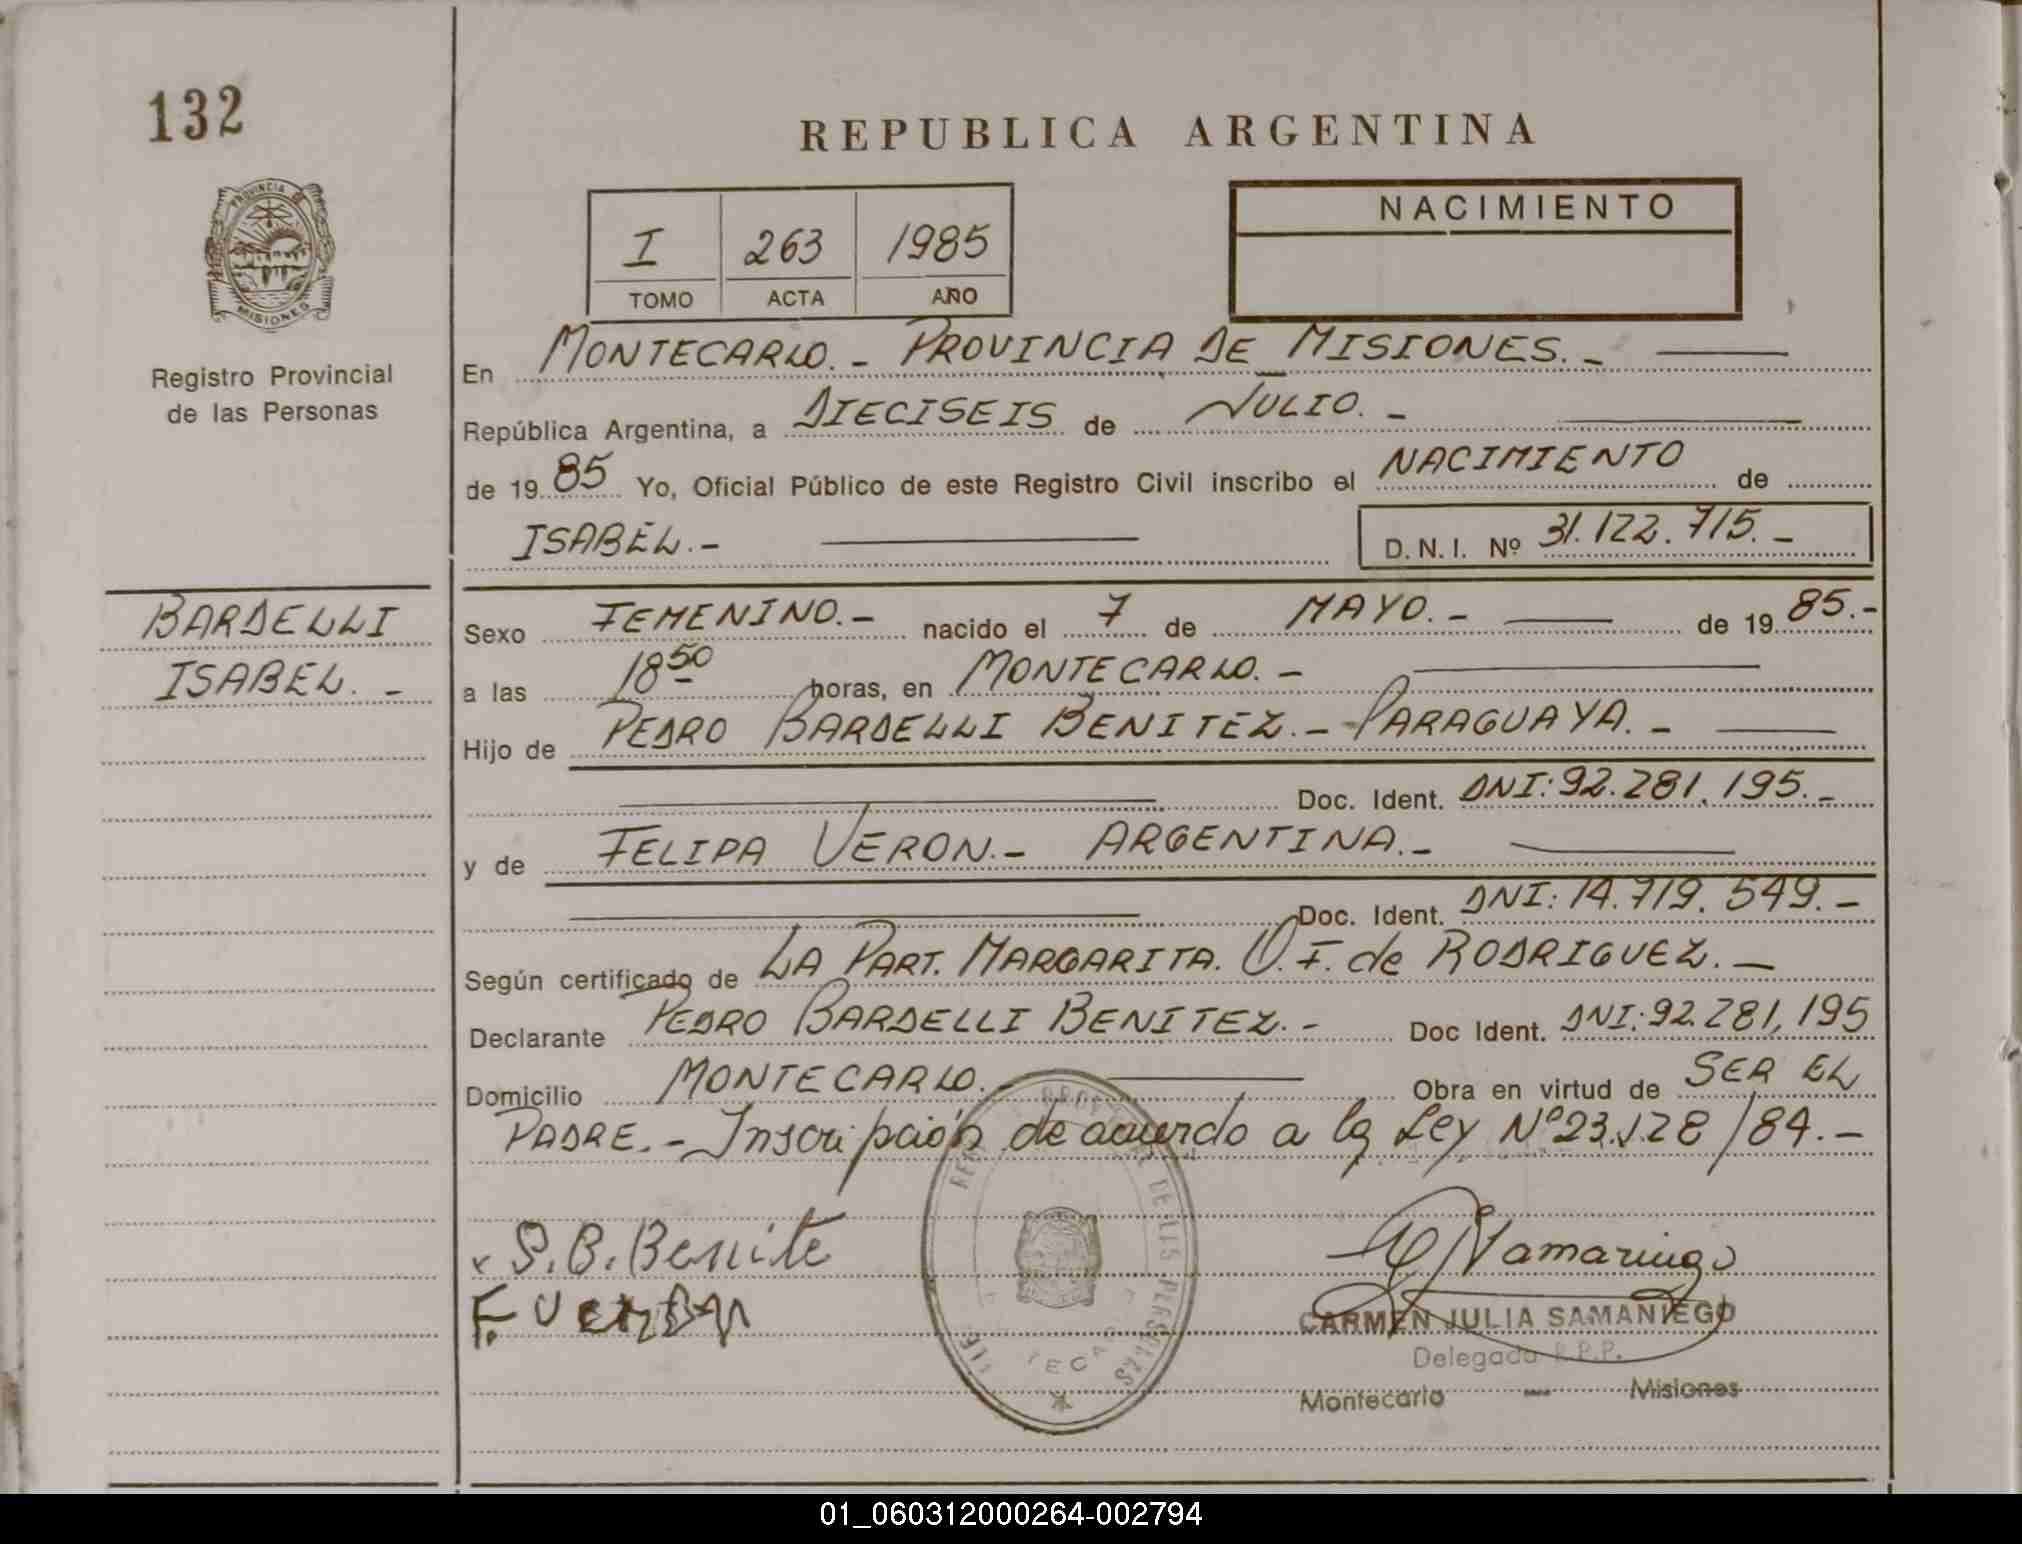 132
PROVINCIA DE
MISIONES
Registro Provincial
de las Personas
BARDELLI
ISABEL.-
REPUBLICA ARGENTINA
I 263 1985
TOMO ACTA AÑO
NACIMIENTO
En MONTECARLO.- PROVINCIA DE MISIONES.-
República Argentina, a DIECISEIS de JULIO.-
de 19 85 Yo, Oficial Público de este Registro Civil inscribo el NACIMIENTO de
ISABEL.- D.N.I. Nº 31.122.715.-
Sexo FEMENINO.- nacido el 7 de MAYO.- de 19 85.-
a las 18 50 horas, en MONTECARLO.-
Hijo de PEDRO BARDELLI BENITEZ.- PARAGUAYA.-
Doc. Ident. DNI: 92.281.195.-
y de FELIPA VERON.- ARGENTINA.-
Doc. Ident. DNI: 14.719.549.-
Según certificado de LA PART. MARGARITA. V.F. de RODRIGUEZ.-
Declarante PEDRO BARDELLI BENITEZ.- Doc Ident. DNI: 92.281,195
Domicilio MONTECARLO.- Obra en virtud de SER EL
PADRE.- Inscripción de acuerdo a la Ley Nº 23.128/84.-
S.B. Benite
F.
CARMEN JULIA SAMANIEGO
Delegada R.P.P.
Montecarlo - Misiones
01_060312000264-002794